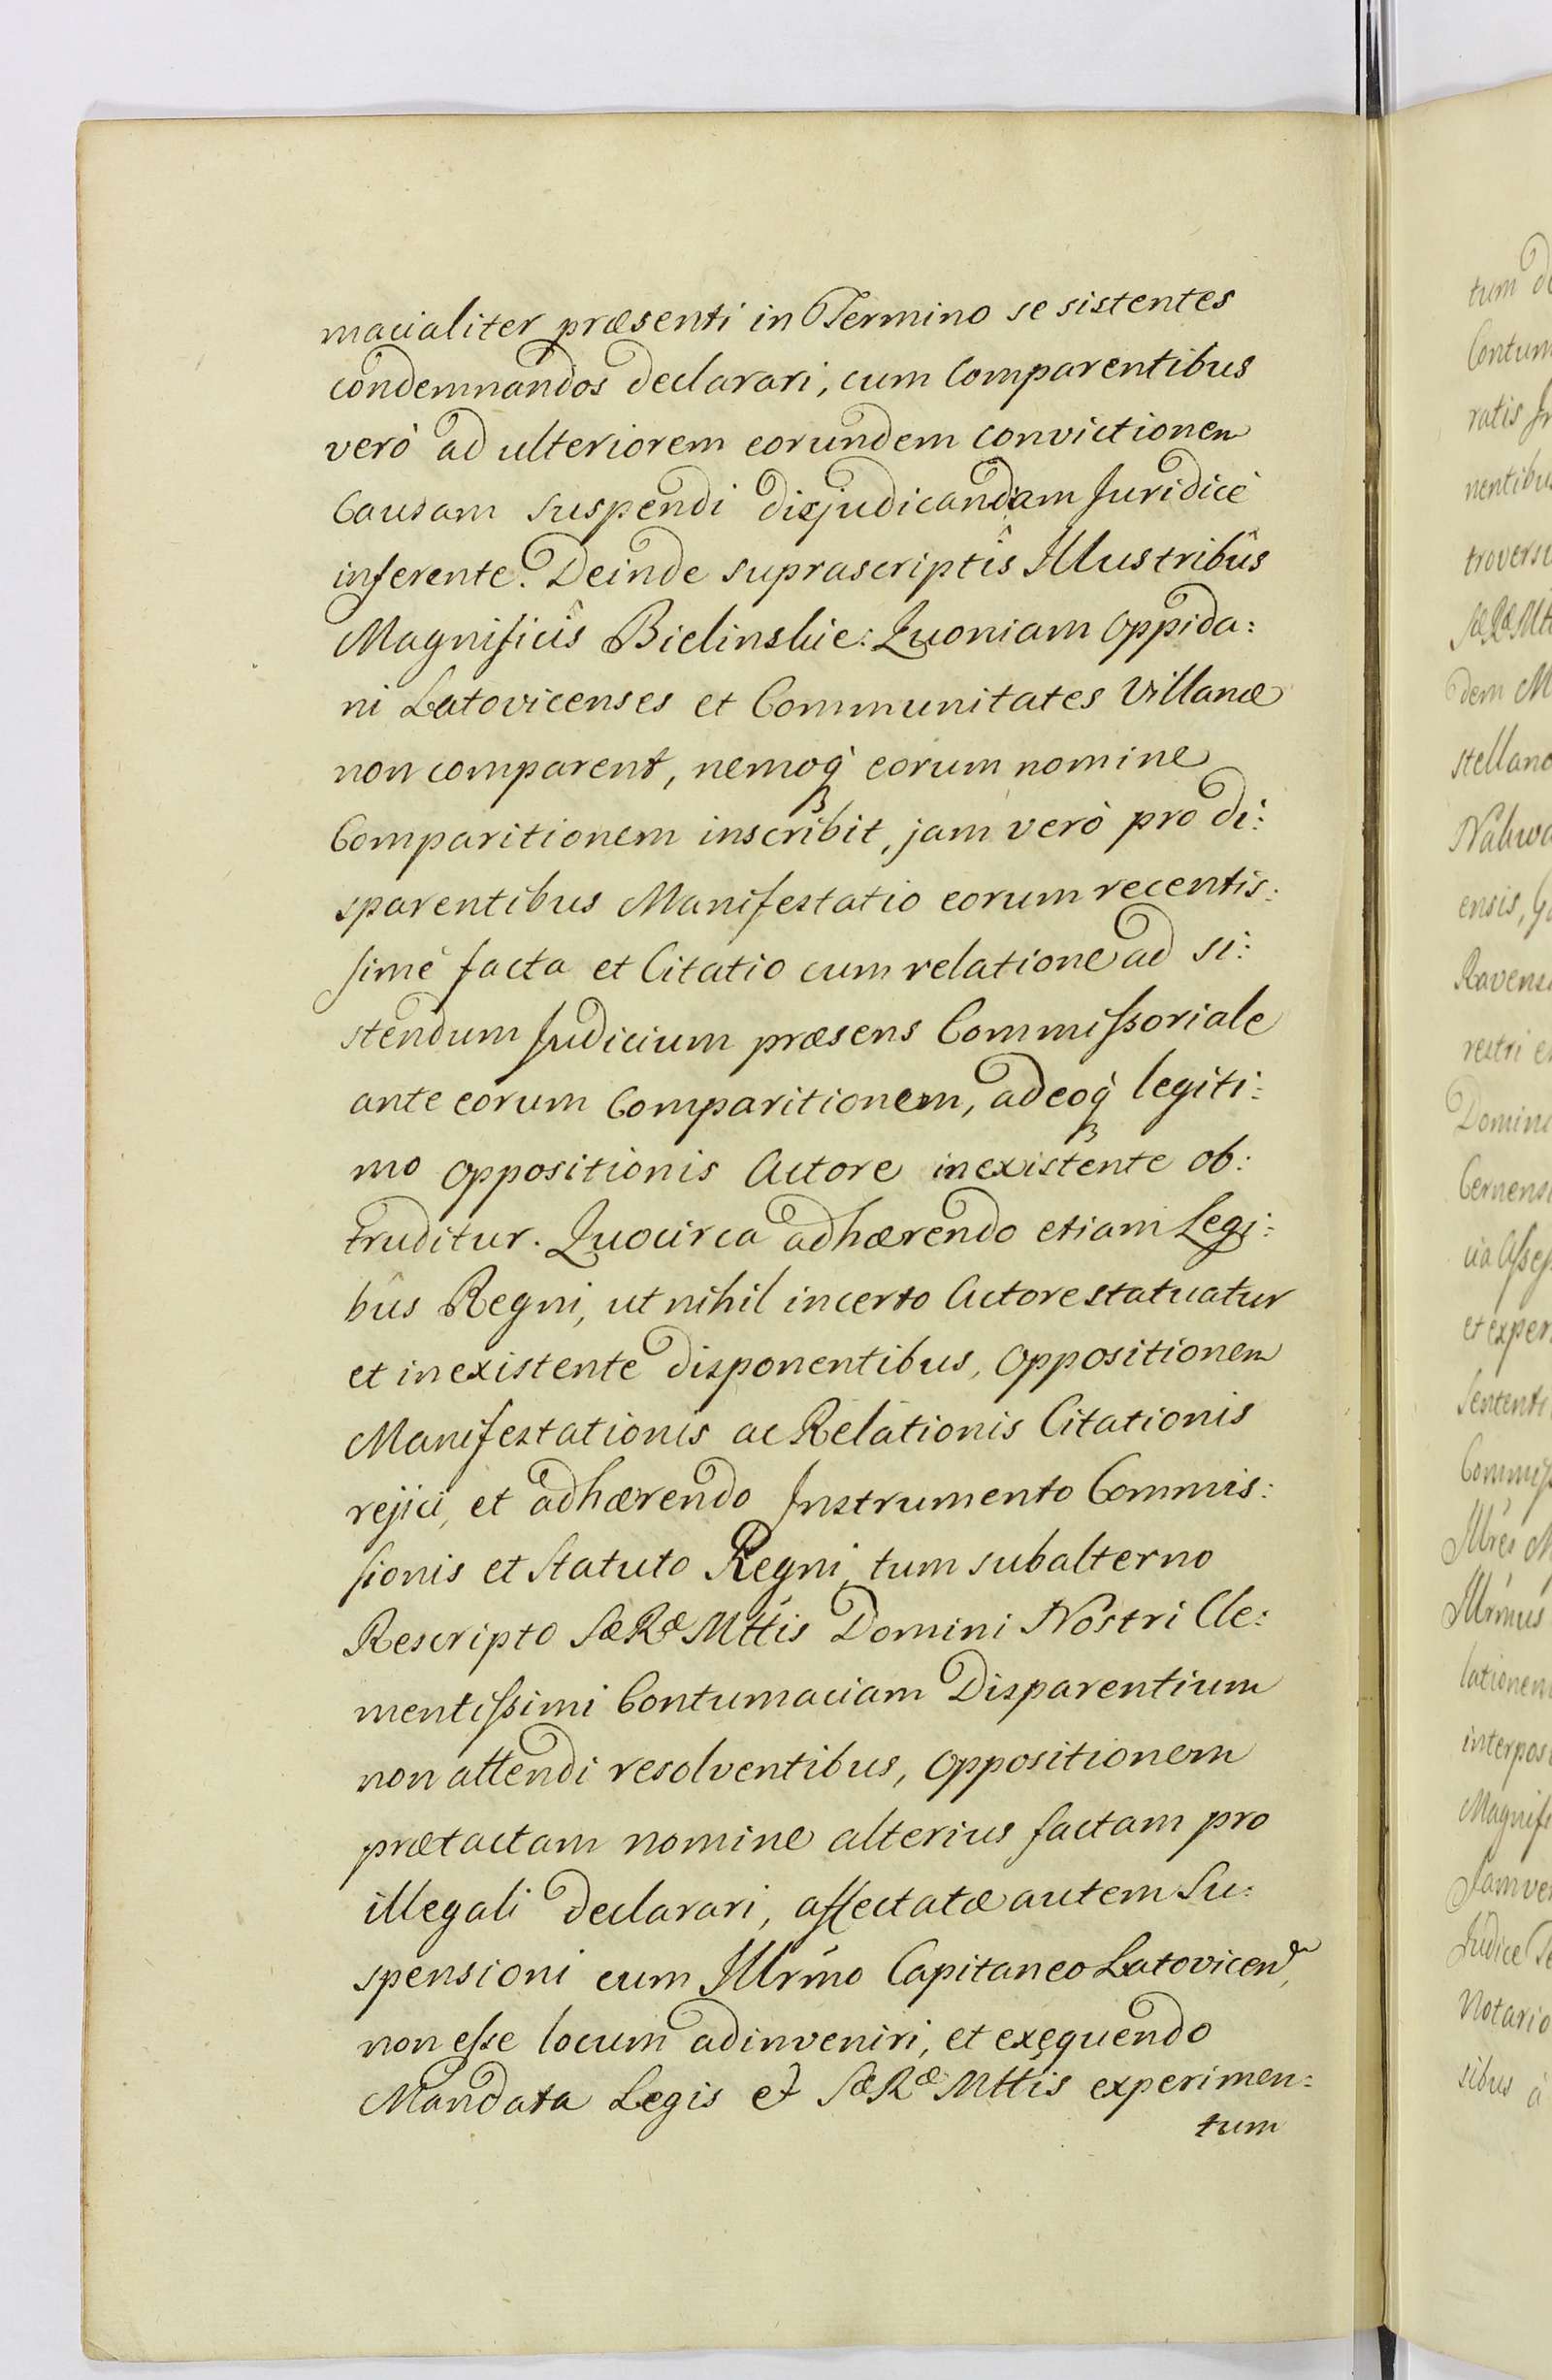 macialiter præsenti in Termino se sistentes
condemnandos declarari, cum Comparentibus
verò ad ulteriorem eorundem convictionem
Causam suspendi disjudicandam Juridicè
inferente. Deinde suprascriptîs Illustribûs
Magnificîs Bielinskie: Quoniam Oppida:
ni Latovicenses et Communitates Villanæ
non comparent, nemoq́ꝫ eorum nomine
Comparitionem inscribit, jam verò pro di:
sparentibus Manifestatio eorum recentis:
simè facta et Citatio cum relatione ad si:
stendum Judicium præsens Commissoriale
ante eorum Comparitionem, adeoq́ꝫ legiti:
mo Oppositionis Actore inexistente ob:
truditur. Quocirca adhærendo etiam Legi:
bûs Regni, ut nihil incerto Actore statuatur
et inexistente disponentibus, Oppositionem
Manifestationis ac Relationis Citationis
rejici, et adhærendo Instrumento Commis:
sionis et Statuto Regni, tum subalterno
Rescripto SæRæ Mttis Domini Nostri Cle:
mentissimi Contumaciam Disparentium
non attendi resolventibus, Oppositionem
prætactam nomine alterius factam pro
illegali declarari, affectatæ autem Su:
spensioni cum Illrmo Capitaneo Latovicen,
non esse locum adinveniri, et exequendo
Mandata Legis et SæRæ Mttis experimen:
tum
tum de
Contum
ratis In
nentibus
troversi
SæRæ Mtt
dem M
stellano
Nakwa
ensis, Go
Ravens
restri e
Domini
Cernens
cia Asses
et exper
Sententi
Commiss
Illres M
Illrmus
lationem
interposi
Magnifi
Jam ver
Judice Te
Notario
sibus à